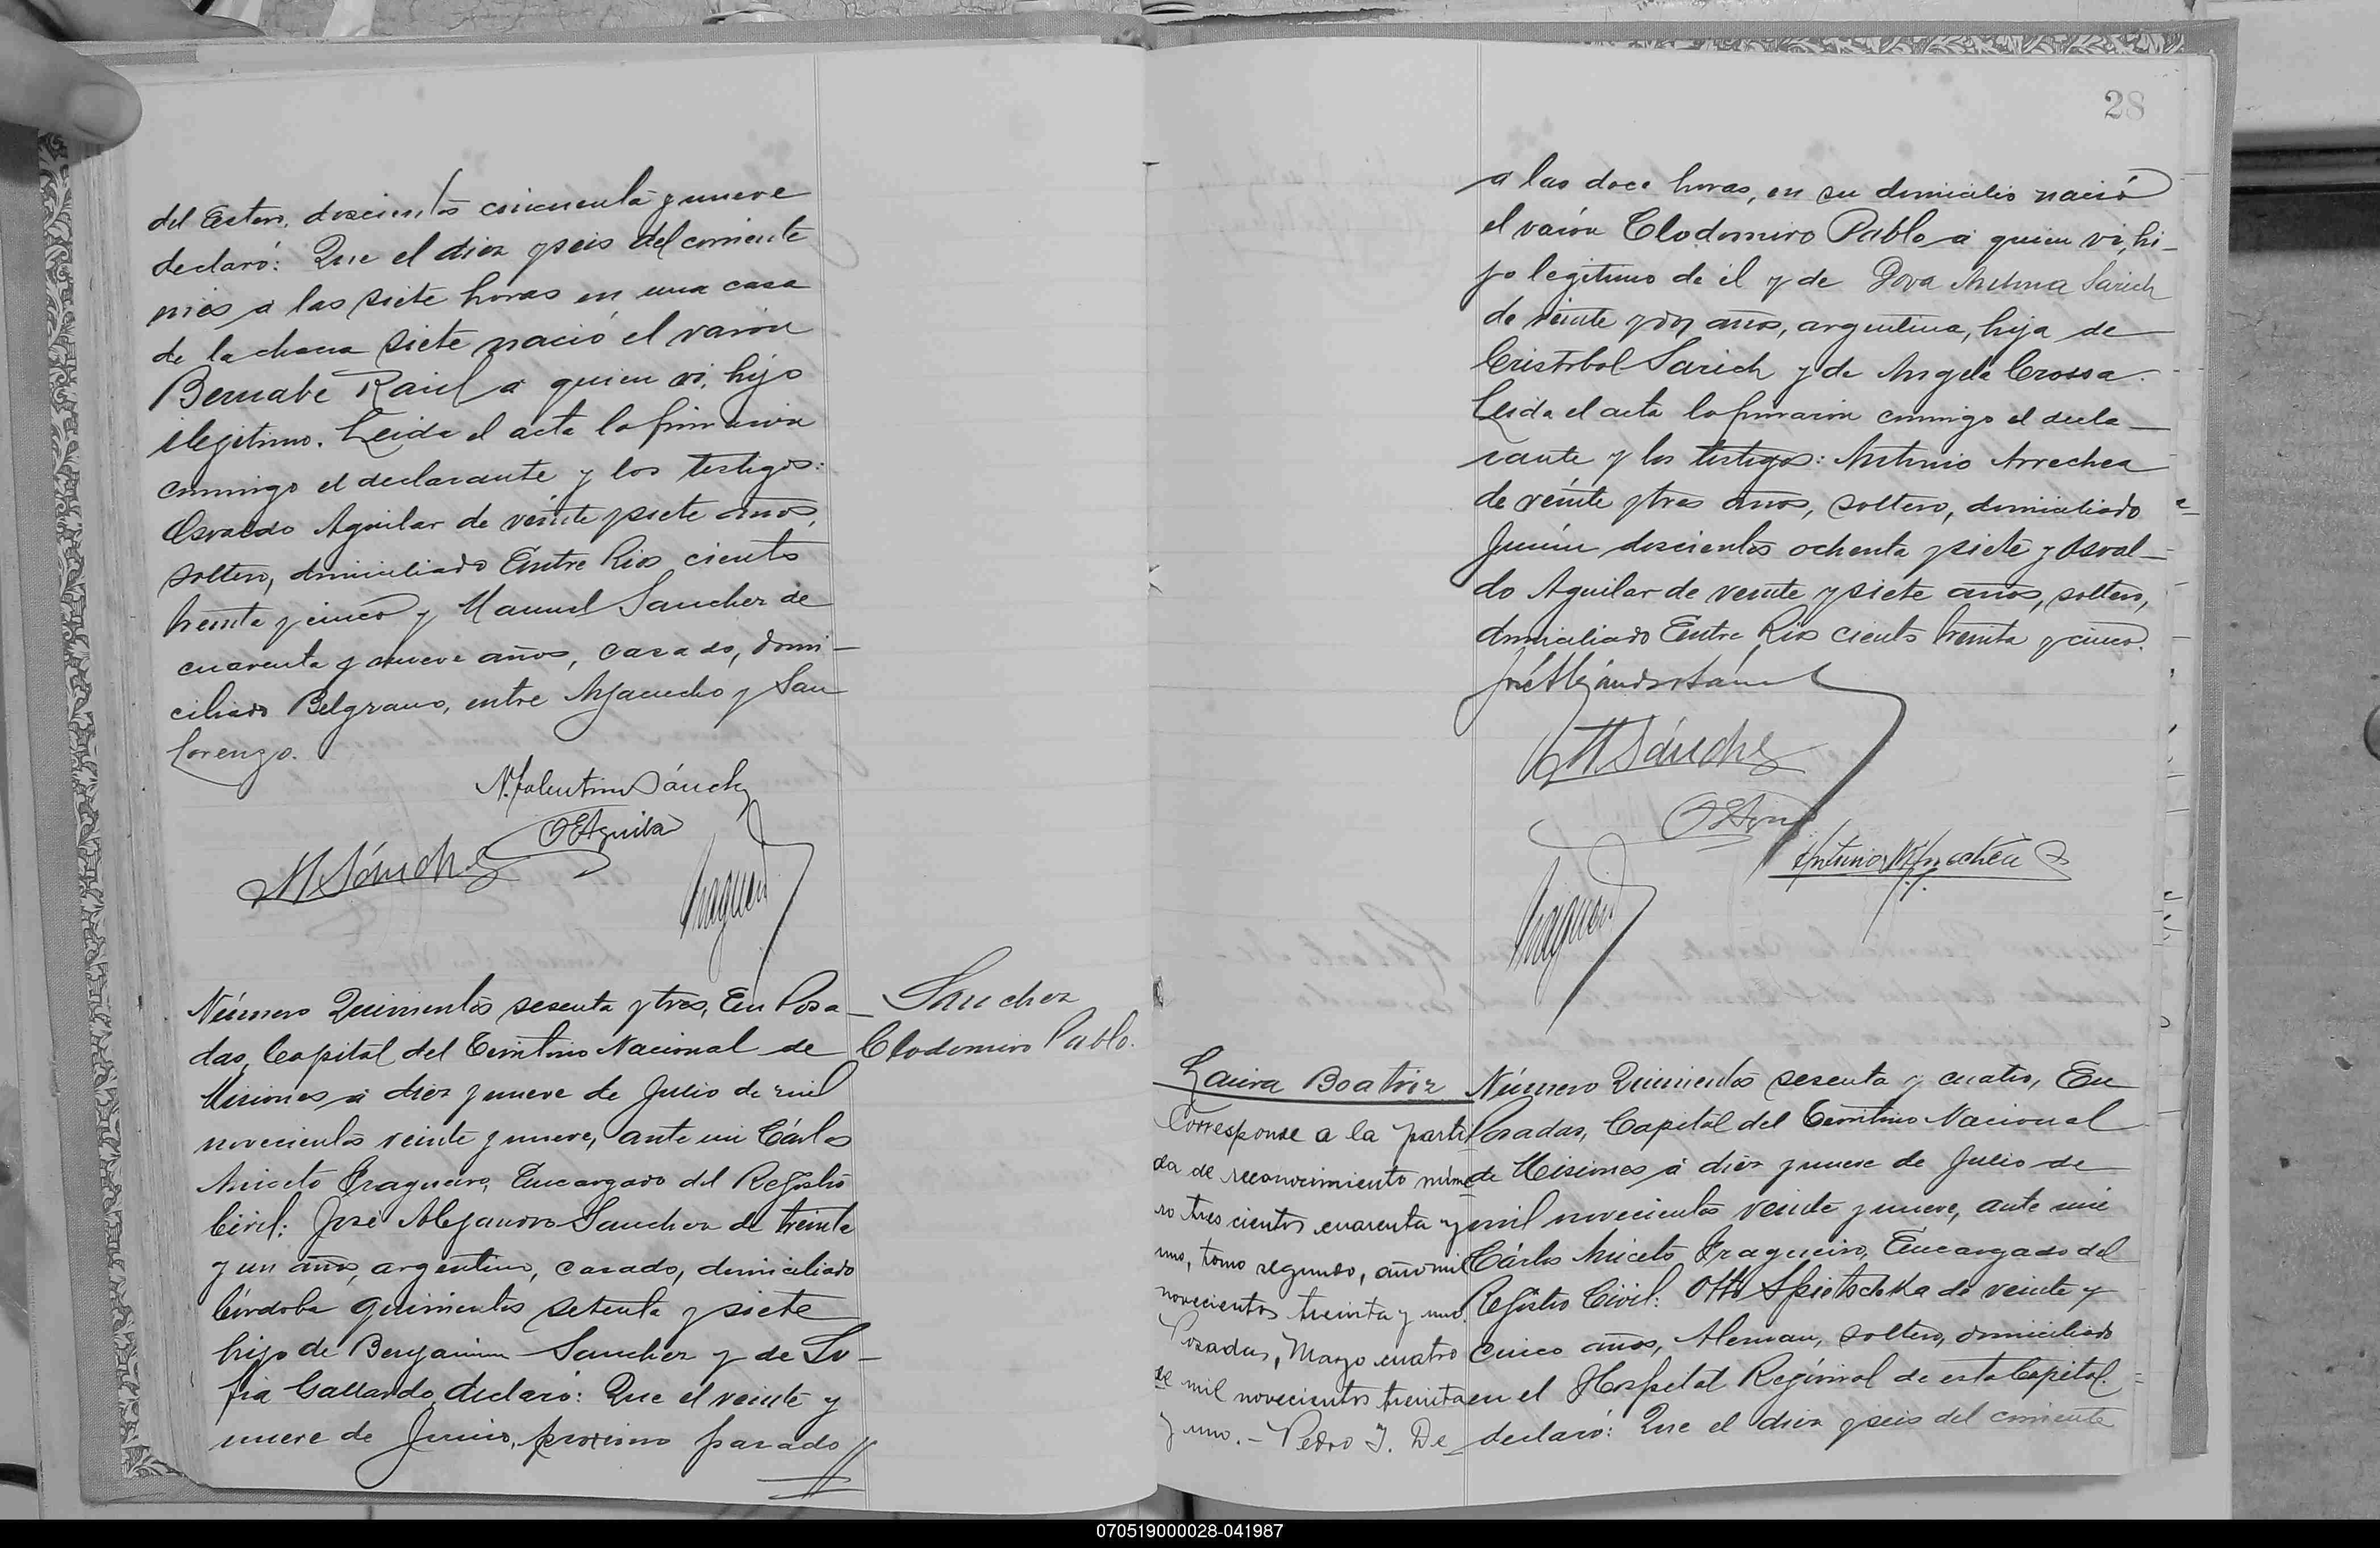 del Estero, doscientos cincuenta y nueve
declaró: Que el diez y seis del corriente
mes a las siete horas en una casa
de la chacra siete nació el varón
Bernabe Raúl a quien vi, hijo
ilegitimo. Leida el acta la firmaron
conmigo el declarante y los testigos:
Osvaldo Aguilar de veinte y siete años,
soltero, domiciliado Entre Rios ciento
treinta y cinco y Manuel Sanchez de
cuarenta y nueve años, casado, domi-
ciliado Belgrano, entre Ayacucho y San
Lorenzo.
N. Valentin Sánchez
O E Aguilar
M Sánchez
Fragueiro
Número Quinientos sesenta y tres, En Posa-
das, Capital del Territorio Nacional de
Misiones a diez y nueve de Julio de mil
novecientos veinte y nueve, ante mi Cárlos
Aniceto Fragueiro, Encargado del Registro
Civil: José Alejandro Sanchez de treinta
y un años, argentino, casado, domiciliado
Córdoba quinientos setenta y siete
hijo de Benjamin Sanchez y de So-
fia Gallardo, declaró: Que el veinte y
nueve de Junio, proximo pasado //
Sanchez
Clodomiro Pablo.
28
a las doce horas, en su domicilio nació
el varón Clodomiro Pablo a quien vi, hi-
jo legitimo de él y de Dova Sarich
de veinte y dos años, argentina, hija de
Cristobal Sarich y de Angela Crossa.
Leida el acta la firmaron conmigo el decla-
rante y los testigos: Antonio Arrechea
de veinte y tres años, soltero, domiciliado
Junin doscientos ochenta y siete y Osval-
do Aguilar de veinte y siete años, soltero,
domiciliado Entre Rios ciento treinta y cinco.
José Alejandro Sánchez
M Sánchez
Antonio M Arrechea
Fragueiro
Laura Beatriz
Corresponde a la parti
da de reconocimiento núme
ro trescientos cuarenta y
uno, tomo segundo, año mil
novecientos treinta y uno.
Posadas, Mayo cuatro
de mil novecientos treinta
y uno.- Pedro J. De
Número Quinientos sesenta y cuatro, En
Posadas, Capital del Territorio Nacional
de Misiones a diez y nueve de Julio de
mil novecientos veinte y nueve, ante mi
Cárlos Aniceto Fragueiro, Encargado del
Registro Civil: Otto Spietschka de veinte y
cinco años, Aleman, soltero, domiciliado
en el Hospital Regional de esta Capital.
declaró: Que el diez y seis del corriente
070519000028-041987